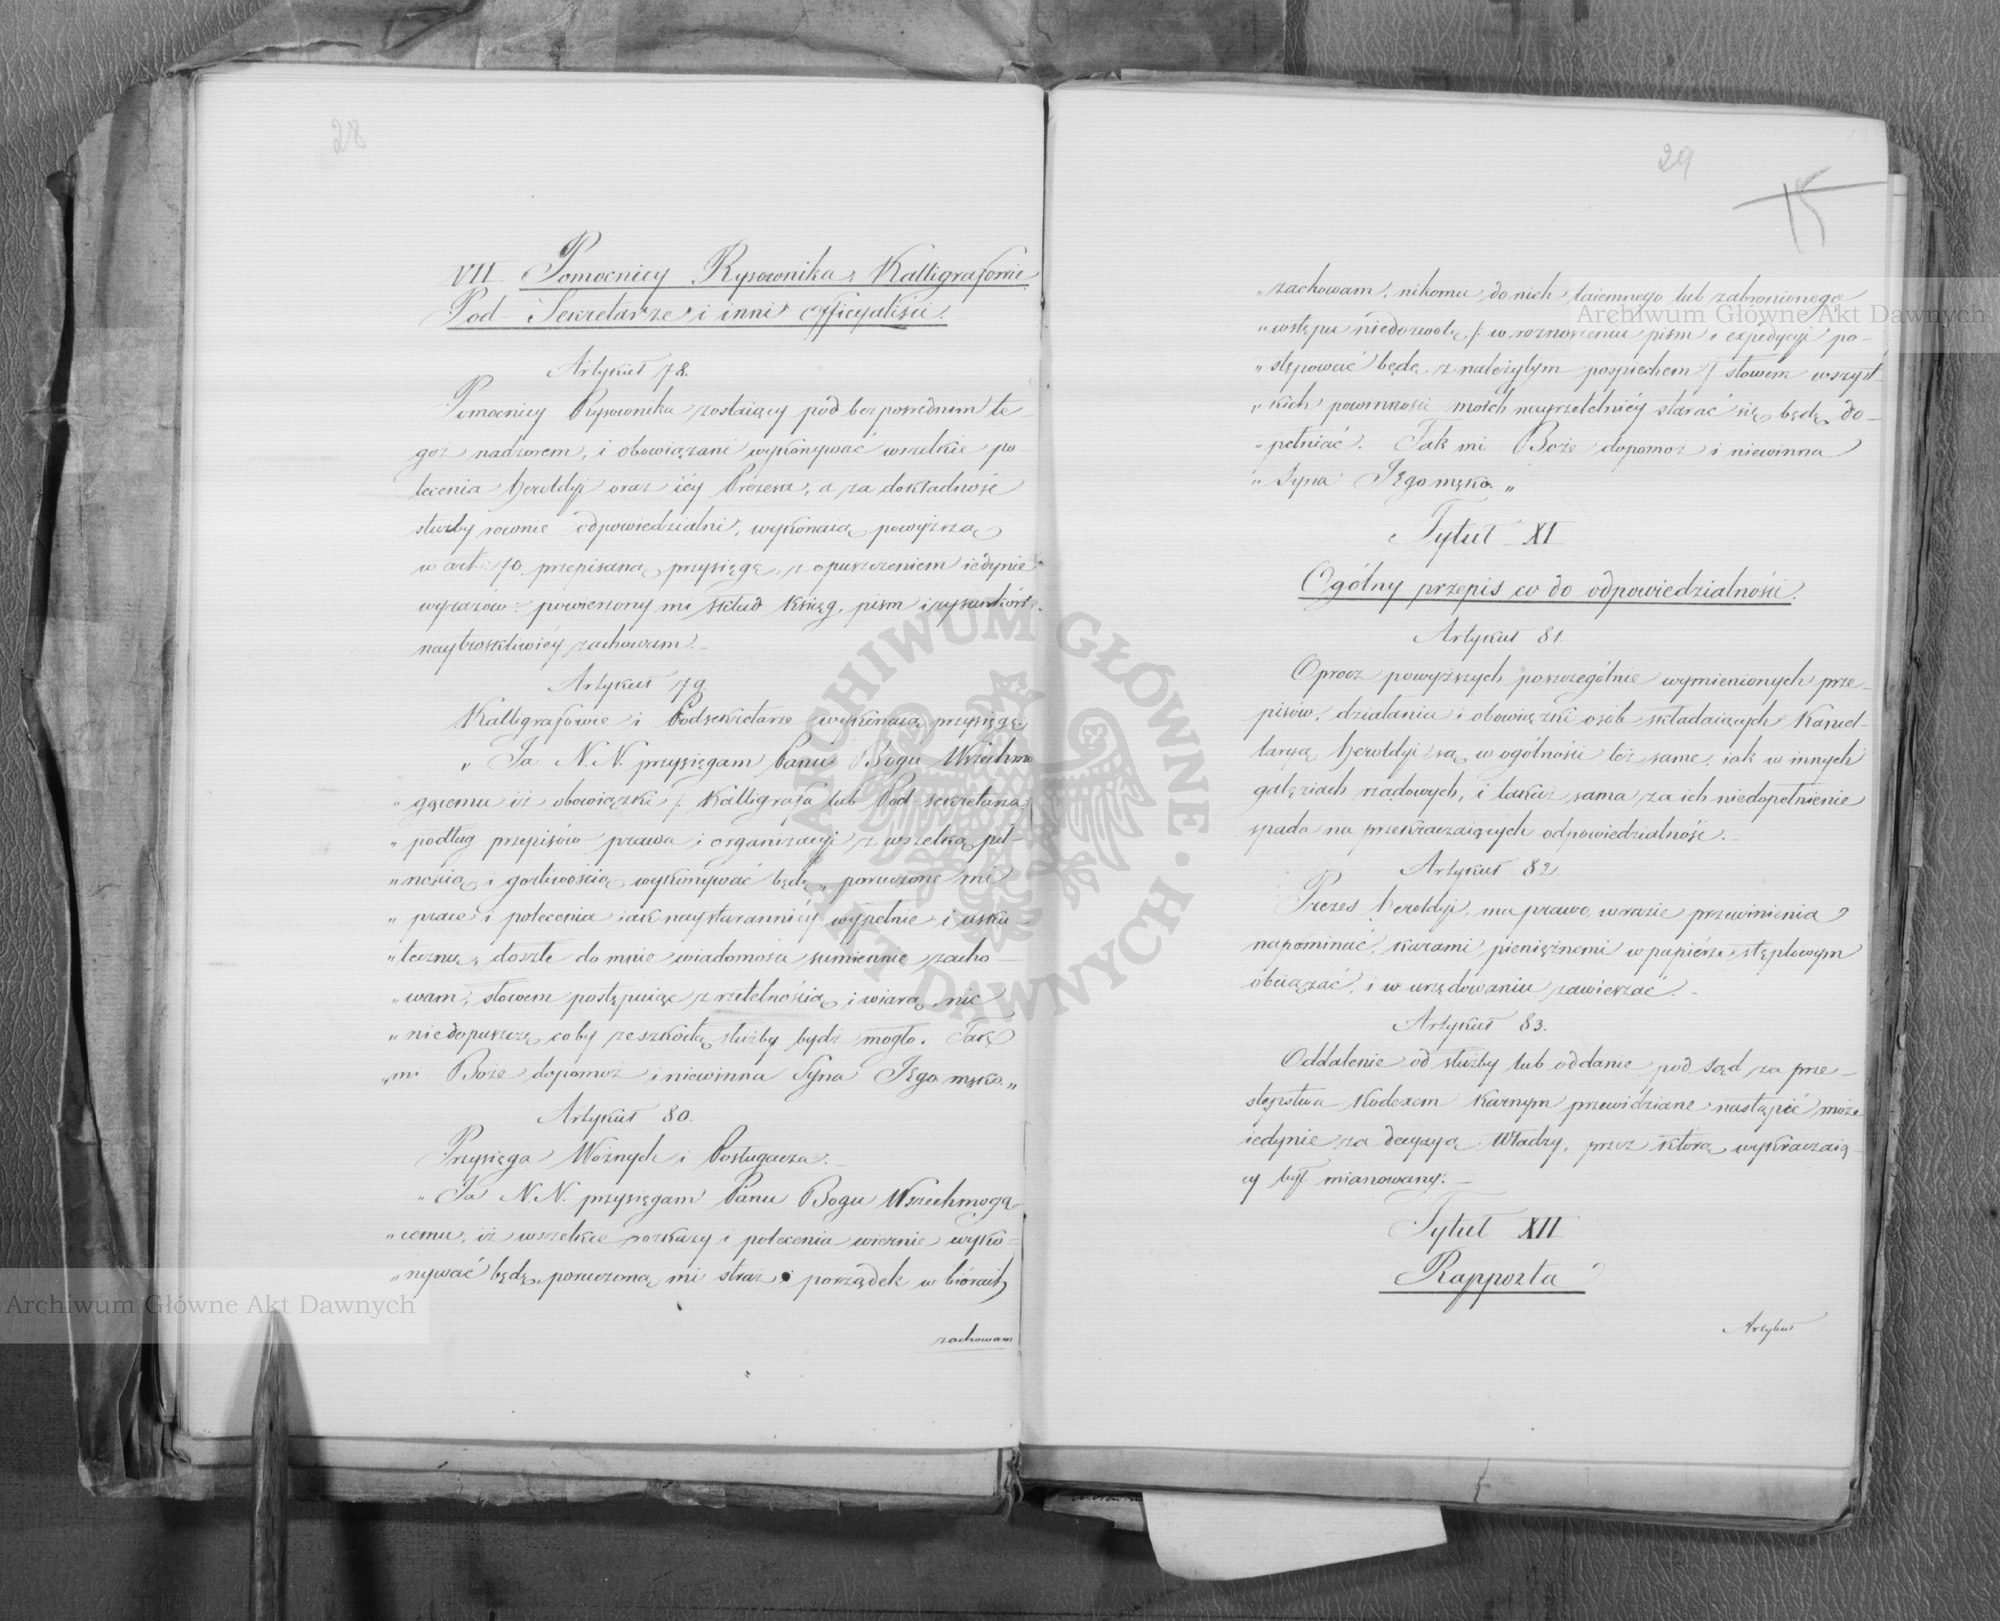 28
VII Pomocnicy Rysownika, Kalligrafowie
Pod-Sekretarze i inni Officyaliści.
Artykuł 78.
Pomocnicy Rysownika zostaiący pod bezpośrednim te-
goż nadzorem, i obowiązani wykonywać wszelkie po-
lecenia Heroldyi oraz iey Prezesa, a za dokładność
służby równie odpowiedzialni, wykonaią powyższą
w art: 70 przepisaną przysięgę, z opuszczeniem iedynie
wyrazów: powierzony mi skład Ksiąg, pism i rysunków
naytroskliwiéy zachowam.
Artykuł 79.
Kalligrafowie i Podsekretarze wykonaią przysięgę.
„ Ja N. N. przysięgam Panu Bogu Wszechmo
„ gącemu iż obowiązki /: Kalligrafa lub Pod-sekretarza
„ podług przepisów prawa i organizacyi z wszelką pil-
„ nością i gorliwością wykonywać będę, poruczone mi
„ prace i polecenia iak naystarannićy wypełnie i usku-
„ tecznię, doszłe do mnie wiadomości sumiennie zacho-
„ wam, słowem postępuiąc z rzetelnością i wiarą nic
„ niedopuszczę coby ze szkodą służby bydź mogło. Tak
„ mi Boże dopomoż i niewinna Syna Jego męka „
Artykuł 80.
Przysięga Woźnych i Posługacza.
„ Ja N. N. przysięgam Panu Bogu Wszechmogą-
„ cemu, iż wszelkie rozkazy i polecenia wiernie wyko-
„ nywać będę, poruczoną mi straż i porządek w biórach
zachowam
29
15
„ zachowam, nikomu do nich taiemnego lub zabronionego
„ wstępu niedozwolę /: w roznoszeniu pism i expedycyi po-
„ stępować będę z należytym pospiechem / słowem wszyst-
„ kich powinności moich nayrzetelniéy starać się będę do-
„ pełniać. Tak mi Boże dopomoż i niewinna
„ Syna Jego męka „
Tytuł XI
Ogólny przepis co do odpowiedzialności.
Artykuł 81.
Oprócz powyższych poszczególnie wymienionych prze-
pisów, działania i obowiązki osób składaiących Kancel-
laryą Heroldyi są w ogólności też same, iak w innych
gałęziach rządowych, i takaż sama za ich niedopełnienie
spada na przekraczaiących odpowiedzialność.
Artykuł 82.
Prezes Heroldyi, ma prawo w razie przewinienia
napominać, karami pieniężnemi w papiérze stęplowym
obciążać, i w urzędowaniu zawieszać.
Artykuł 83.
Oddalenie od służby lub oddanie pod Sąd za prze-
stępstwa Kodexem Karnym przewidziane nastąpić może
iedynie za decyzyą Władzy, przez którą wykraczaią-
cy był mianowany.
Tytuł XII
Rapporta
Artykuł
Archiwum Główne Akt Dawnych
Archiwum Główne Akt Dawnych
ARCHIWUM GŁÓWNE AKT DAWNYCH